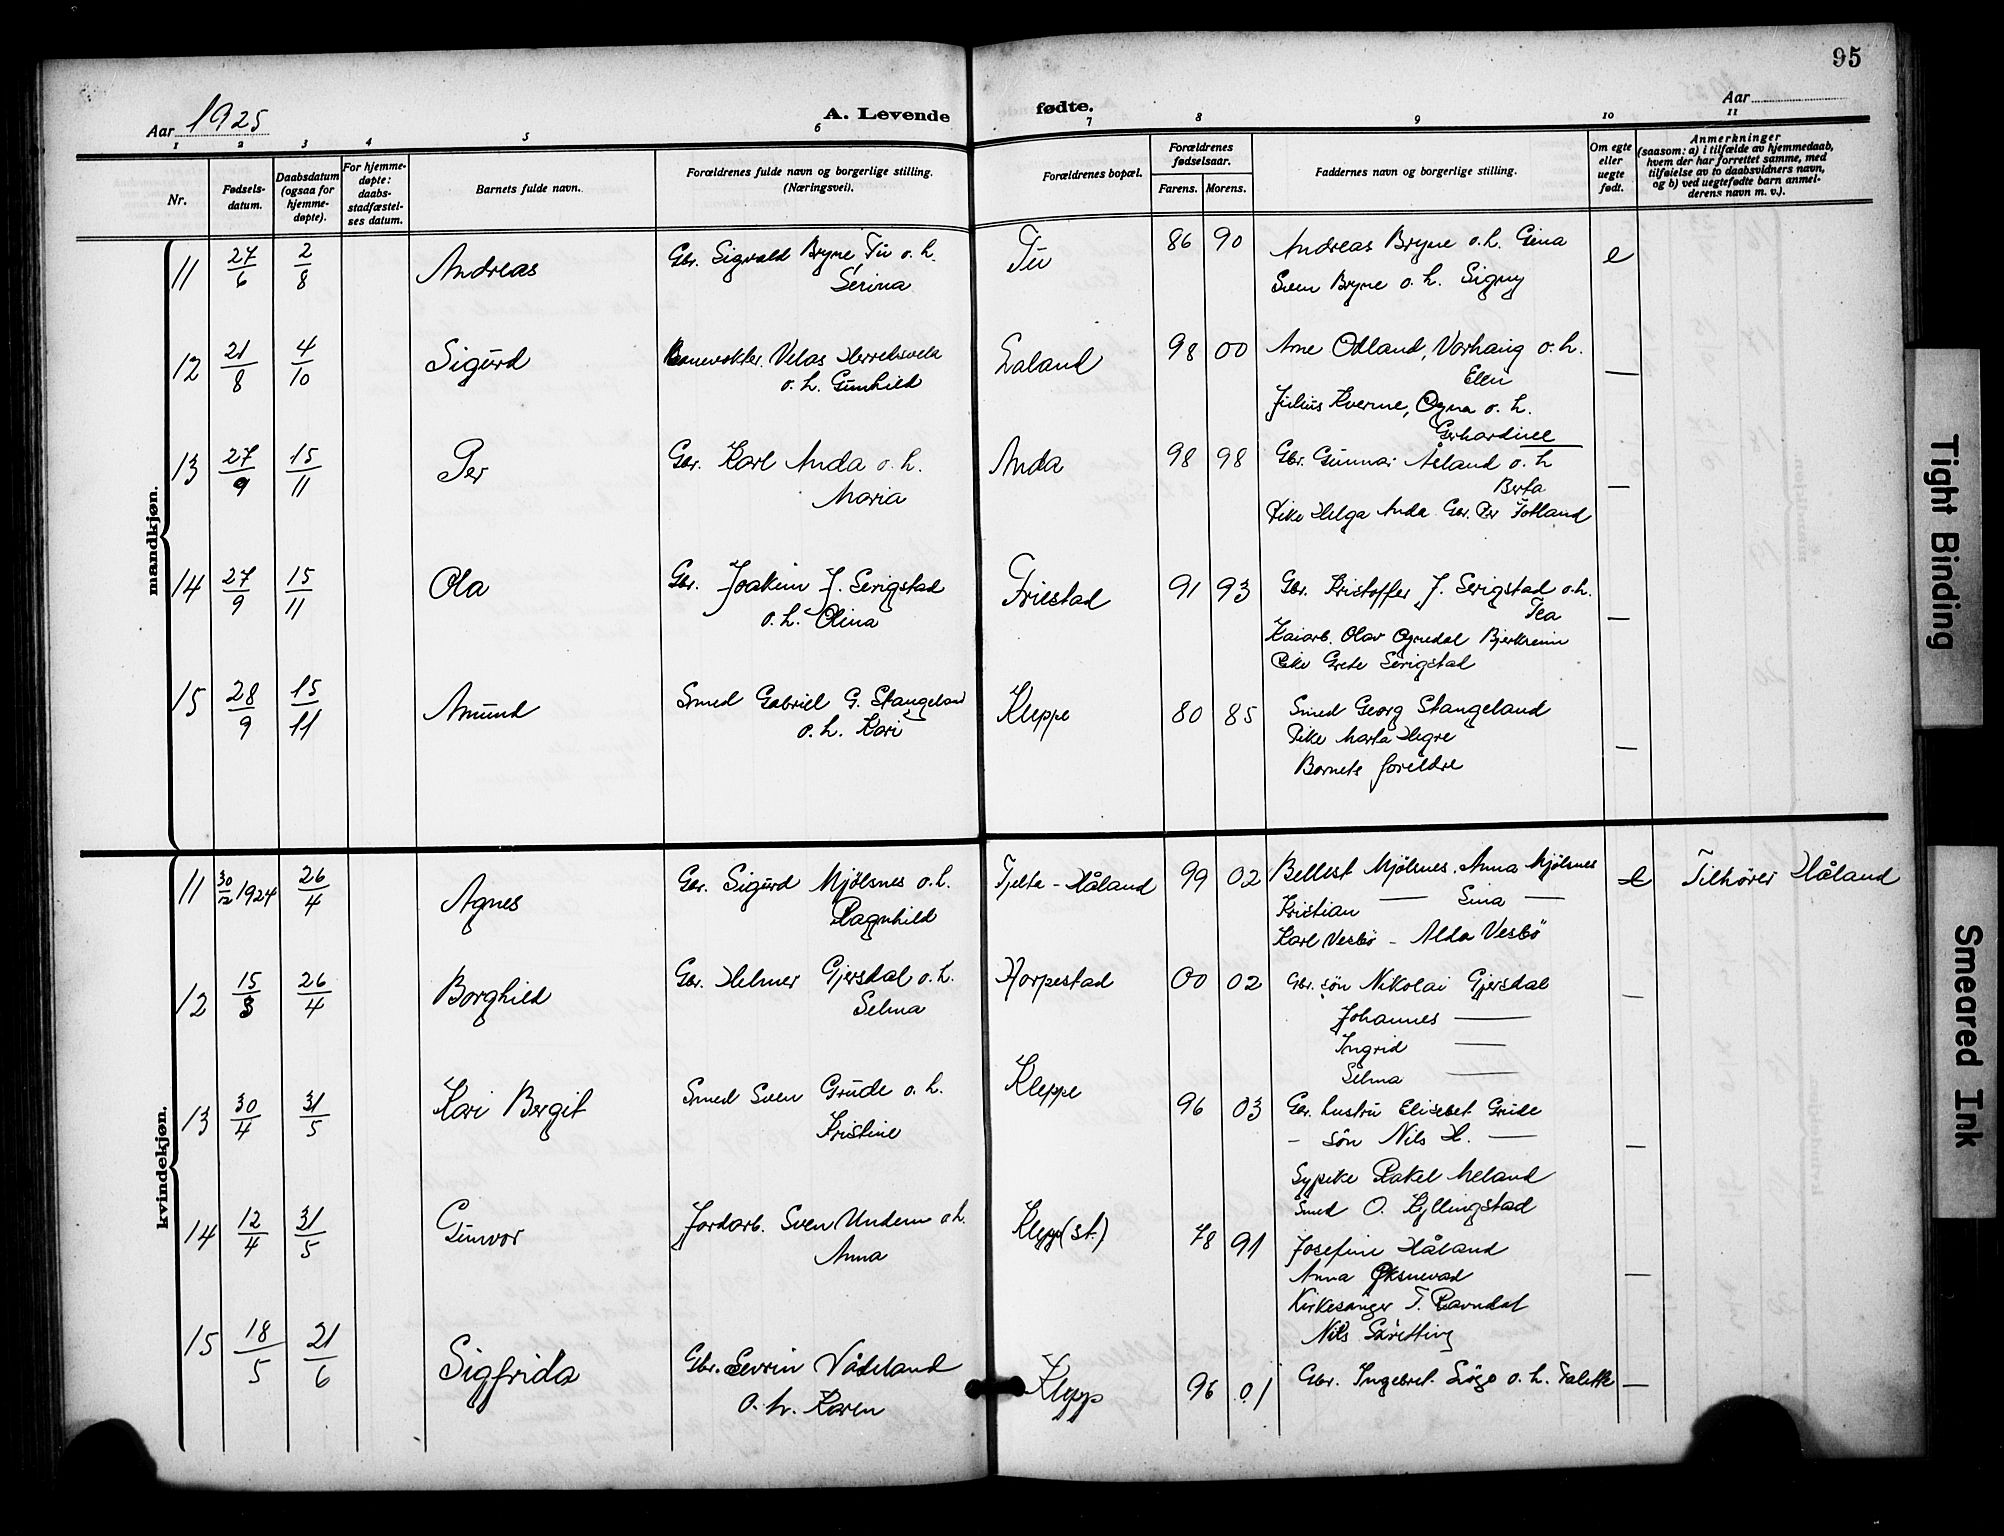 95
Aar 1925
A. Levende fødte.
Aar
1 2 3 4 5 6 7 8 9 10 11
Nr.
Fødsels-
datum.
Daabsdatum
(ogsaa for
hjemme-
døpte).
For hjemme-
døpte:
daabs-
stadfæstel-
ses datum.
Barnets fulde navn.
Forældrenes fulde navn og borgerlige stilling.
(Næringsvei).
Forældrenes bopæl.
Forældrenes
fødselsaar.
Farens. Morens.
Faddernes navn og borgerlige stilling.
Om egte
eller
uegte
født.
Anmerkninger
(saasom: a) i tilfælde av hjemmedaab,
hvem der har forrettet samme, med
tilføielse av to daabsvidners navn,
og b) ved uegtefødte barn anmel-
derens navn m. v.).
mandkjøn.
11 27/6 2/8 Andreas Gbr. Sigvald Bryne, Tu o. h. Tu 86 90 Andreas Bryne o. h. Gina e
Serina Sven Bryne o. h. Signy
12 21/8 4/10 Sigurd Banevokter Velas o. h. Gunhild 98 00 Arne Odland, Varhaug o. h. —
Elen
Julius Kverme, Ogna o. h.
Gerhardine
13 27/9 15/11 Per Gbr. Karl Anda o. h. Anda 98 98 Gbr. Gunnar Åsland o. h. —
Maria Berta
Pike Helga Anda Gbr. Per Jotland
14 27/9 15/11 Ola Gbr. Joakim J. Serigstad Friestad 91 93 Gbr. Kristoffer J. Serigstad o. h. —
o. h. Olina Tea
Kaiarb. Olav Ognedal Bjerkreim
Pike Grete Serigstad
15 28/9 15/11 Amund Smed Gabriel G. Stangeland Kleppe 80 85 Smed Georg Stangeland —
o. h. Kari Pike Marta Hegre
Barnets foreldre
kvindekjøn.
11 30/12 1924 26/4 Agnes Gbr. Sigurd Mjølsnes o. h. Tjelta - Håland 99 02 Bellest Mjølsnes. Anna Mjølsnes e Tilhører Håland
Ragnhild Kristian — Sina —
Karl Vesbø - Alda Vesbø
12 15/3 26/4 Borghild Gbr. Helmer Gjersdal o. h. Horpestad 00 02 Gbr. søn Nikolai Gjersdal —
Selma Johannes —
Ingrid —
Selma —
13 30/4 31/5 Kari Bergit Smed Sven Grude o. h. Kleppe 96 03 Gbr. hustru Elisebet Grude —
Kristine - søn Nils H. —
Sypike Rakel Meland
Smed O. Kyllingstad
14 12/4 31/5 Gunvor Jordarb. Sven Undem o. h. Klepp (st.) 78 91 Josefine Håland —
Anna Anna Øksnevad
Kirkesanger T. Ravndal
Nils Skretting
15 18/5 21/6 Sigfrida Gbr. Sevrin Vådeland Klepp 96 01 Gbr. Ingebret o. h. —
o. h. Karen
Tight Binding
Smeared Ink